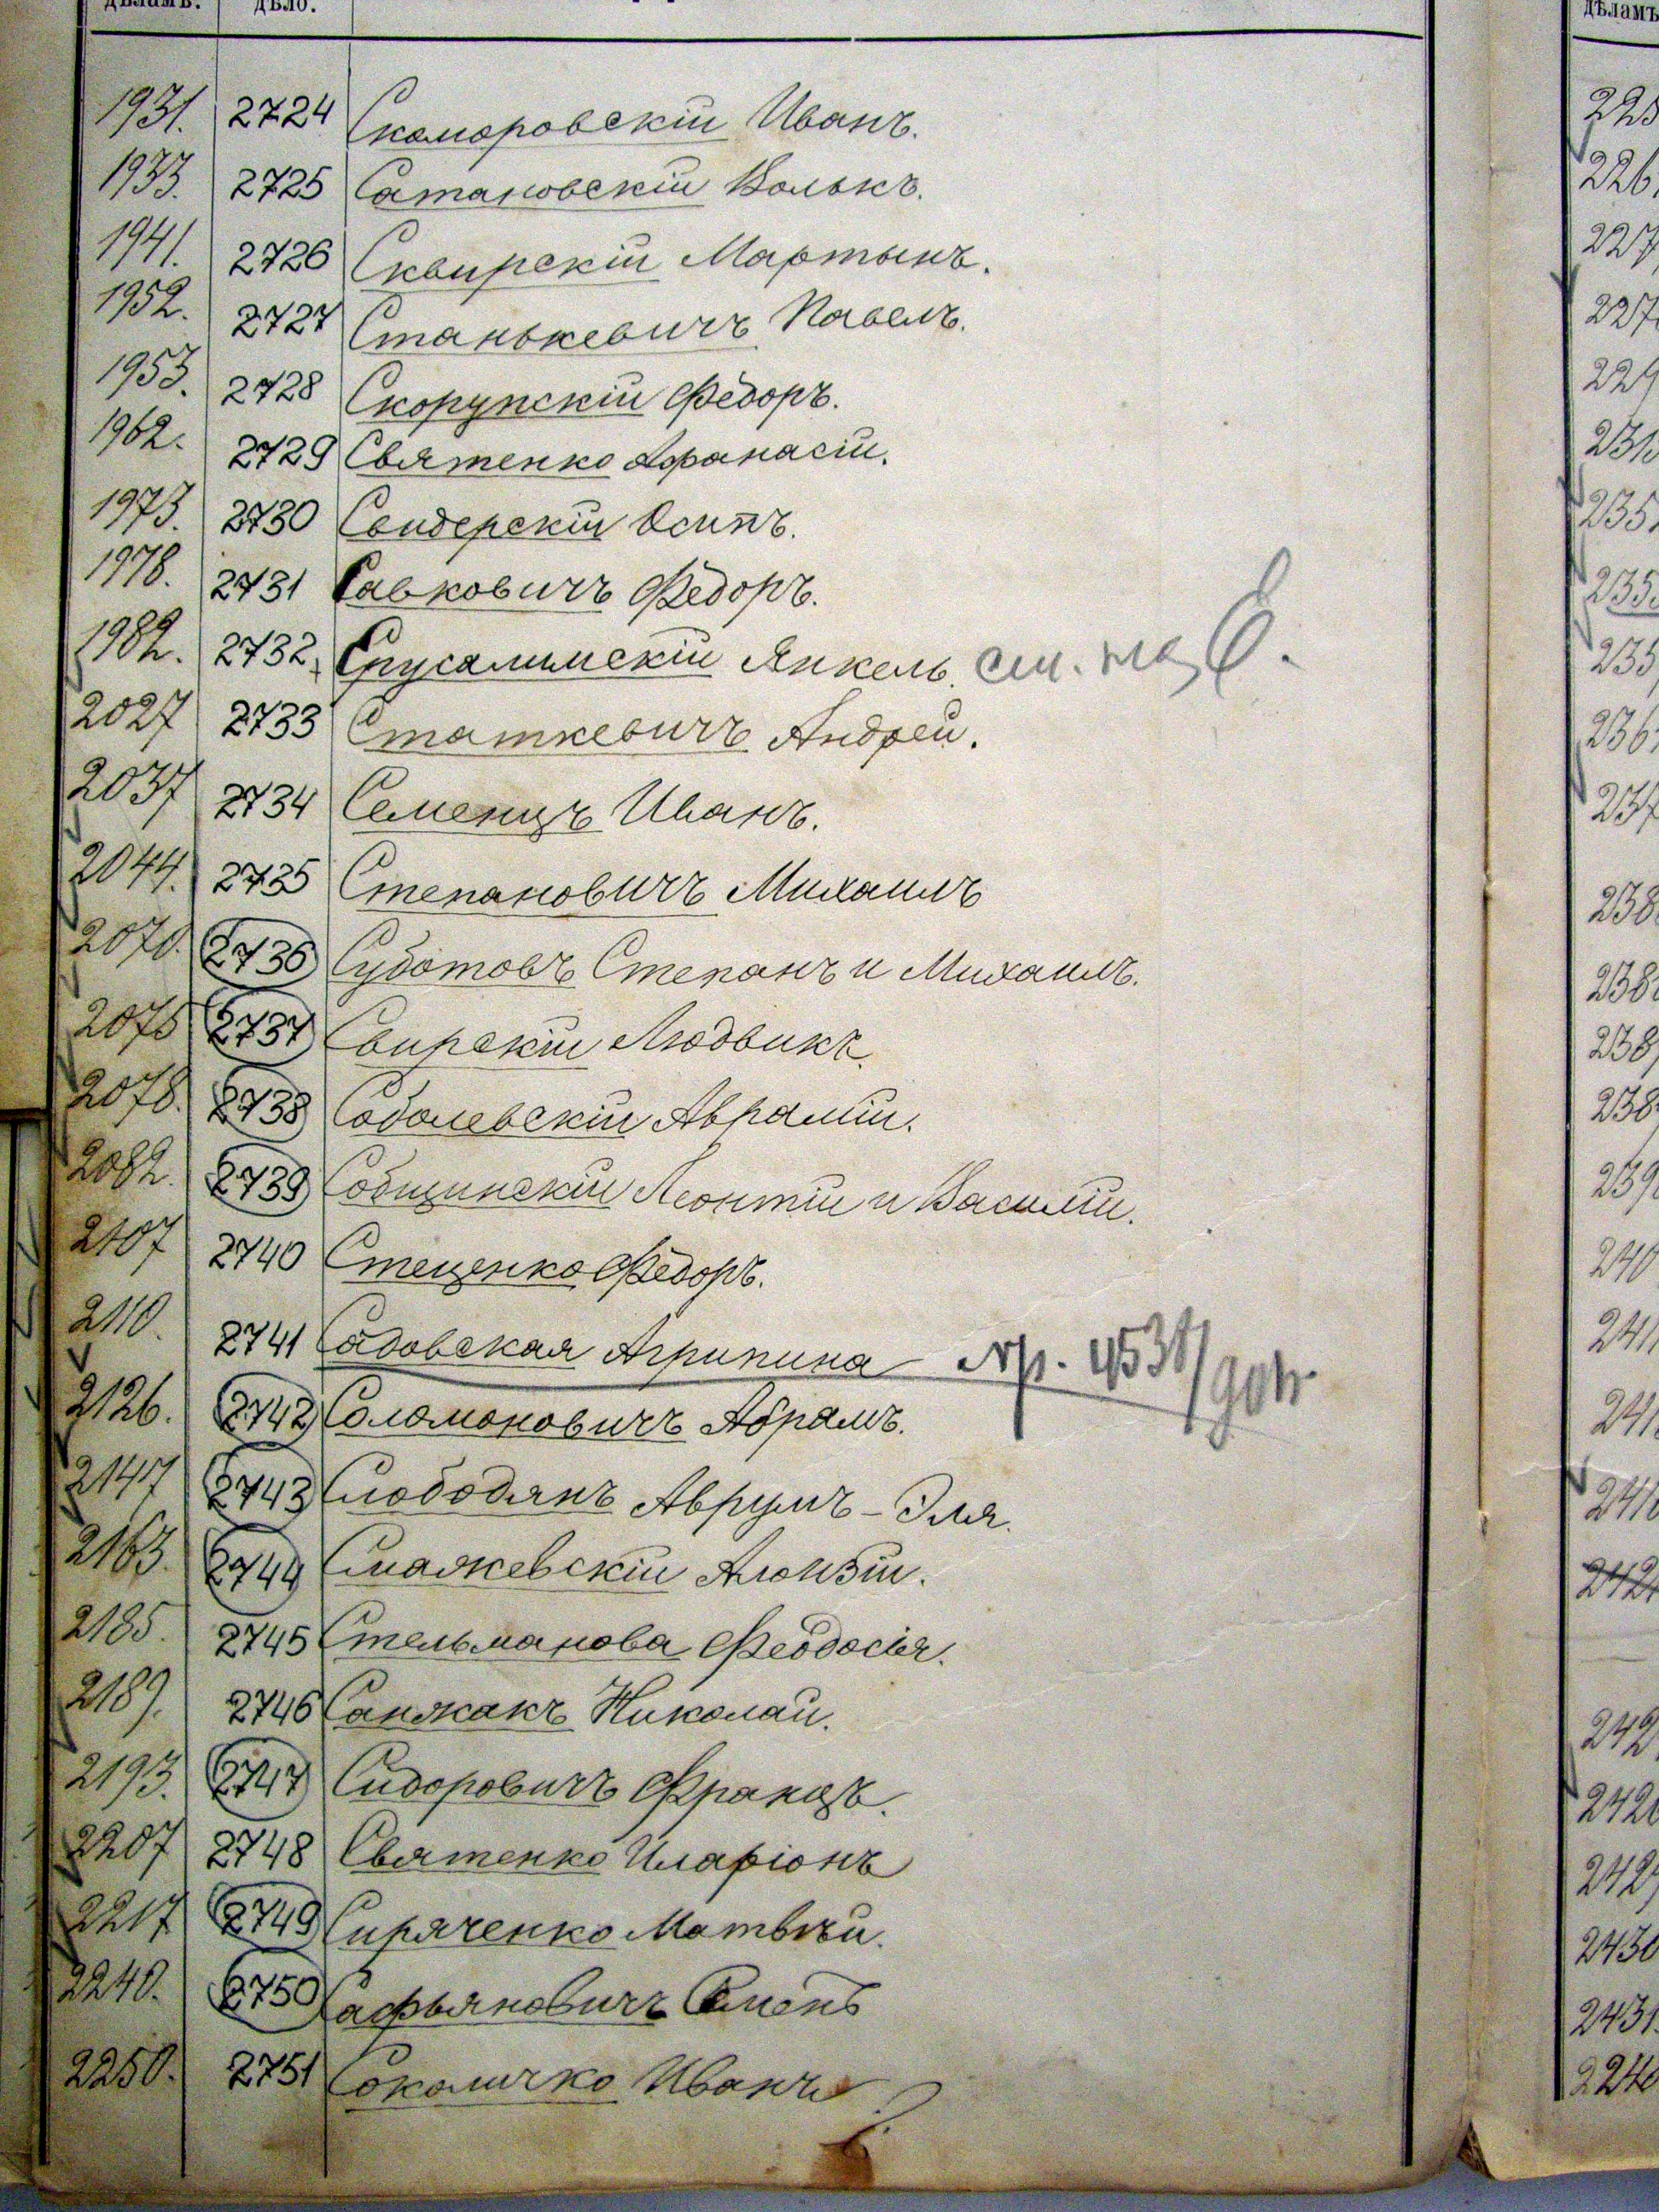 дѣламъ. дѣло. дѣламъ
1931. 2724 Скоморовскій Иванъ.
1933. 2725 Сатановскій Волькъ.
1941. 2726 Сквирскій Мартынъ.
1952. 2727 Станькевичъ Павелъ.
1953. 2728 Скорупскій Федоръ.
1962. 2729 Святенко Афанасій.
1973. 2730 Свидерскій Осипъ.
1978. 2731 Савковичъ Федоръ.
1982. 2732. Єрусалимскій Янкель. см. на Є.
2027 2733 Статкевичъ Андрей.
2037 2734 Семенцъ Иванъ.
2044. 2735 Степановичъ Михаилъ
2070. 2736 Суботовъ Степанъ и Михаилъ.
2075 2737 Свирскій Людвикъ
2078. 2738 Соболевскій Аврамій.
2082. 2739 Собщинскій Леонтій и Василій.
2107 2740 Стеценко Федоръ.
2110. 2741 Садовская Агрипина
2126. 2742 Соломоновичъ Абрамъ.
2147 2743 Слободянъ Аврумъ-Эля.
2163. 2744 Смажевскій Алоизій.
2185. 2745 Стельманова Феодосія.
2189. 2746 Санжакъ Николай.
2193. 2747 Сидоровичъ Францъ.
2207 2748 Святенко Иларіонъ
2217 2749 Сиряченко Матвѣй.
2240. 2750 Сафьяновичъ Семенъ
2250. 2751 Соколичко Иванъ